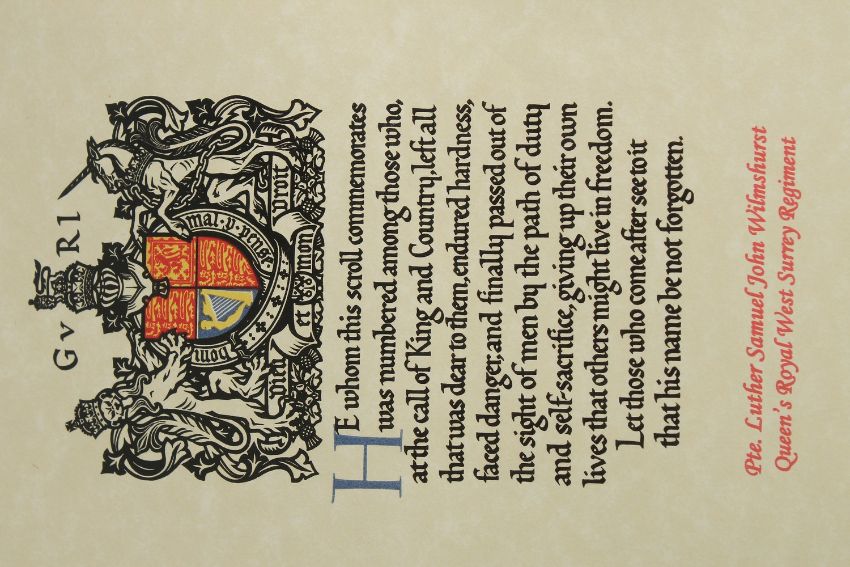 GVRI
honi
mal·y·pense
Dieu et mon droit
HE whom this scroll commemorates
was numbered among those who,
at the call of King and Country, left all
that was dear to them, endured hardness,
faced danger, and finally passed out of
the sight of men by the path of duty
and self-sacrifice, giving up their own
lives that others might live in freedom.
Let those who come after see to it
that his name be not forgotten.
Pte. Luther Samuel John Wilmshurst
Queen's Royal West Surrey Regiment